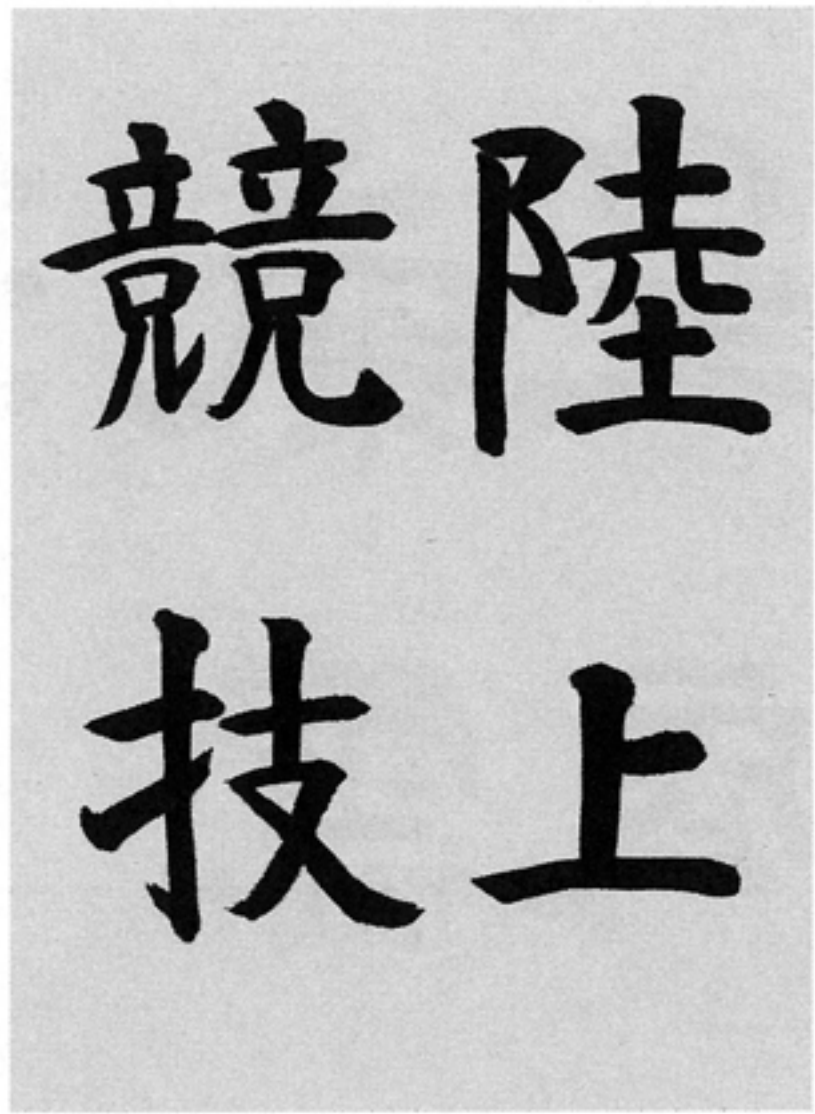 陸上
競技